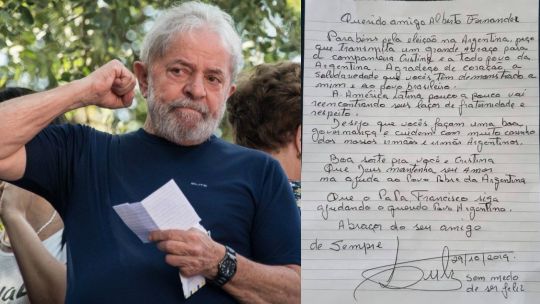 Querido amigo Alberto Fernandez
Parabéns pela eleição na Argentina, peço
que transmita um grande abraço para
a companheira Cristina e a todo povo da
Argentina. Agradeço de coração a
solidariedade que vocês têm demonstrado a
mim e ao povo brasileiro.
A América Latina pouco a pouco vai
reencontrando seus laços de fraternidade e
respeito.
Desejo que vocês façam uma boa
governança e cuidem com muito carinho
dos nossos irmãos e irmãs Argentinos.
Boa sorte pra você e Cristina
Que Deus mantenha seu amor
na ajuda ao Povo Pobre da Argentina
Que o Papa Francisco siga
ajudando o querido Povo Argentino.
Abraços do seu amigo
de sempre
29/10/2019
Lula
sem medo
de ser feliz